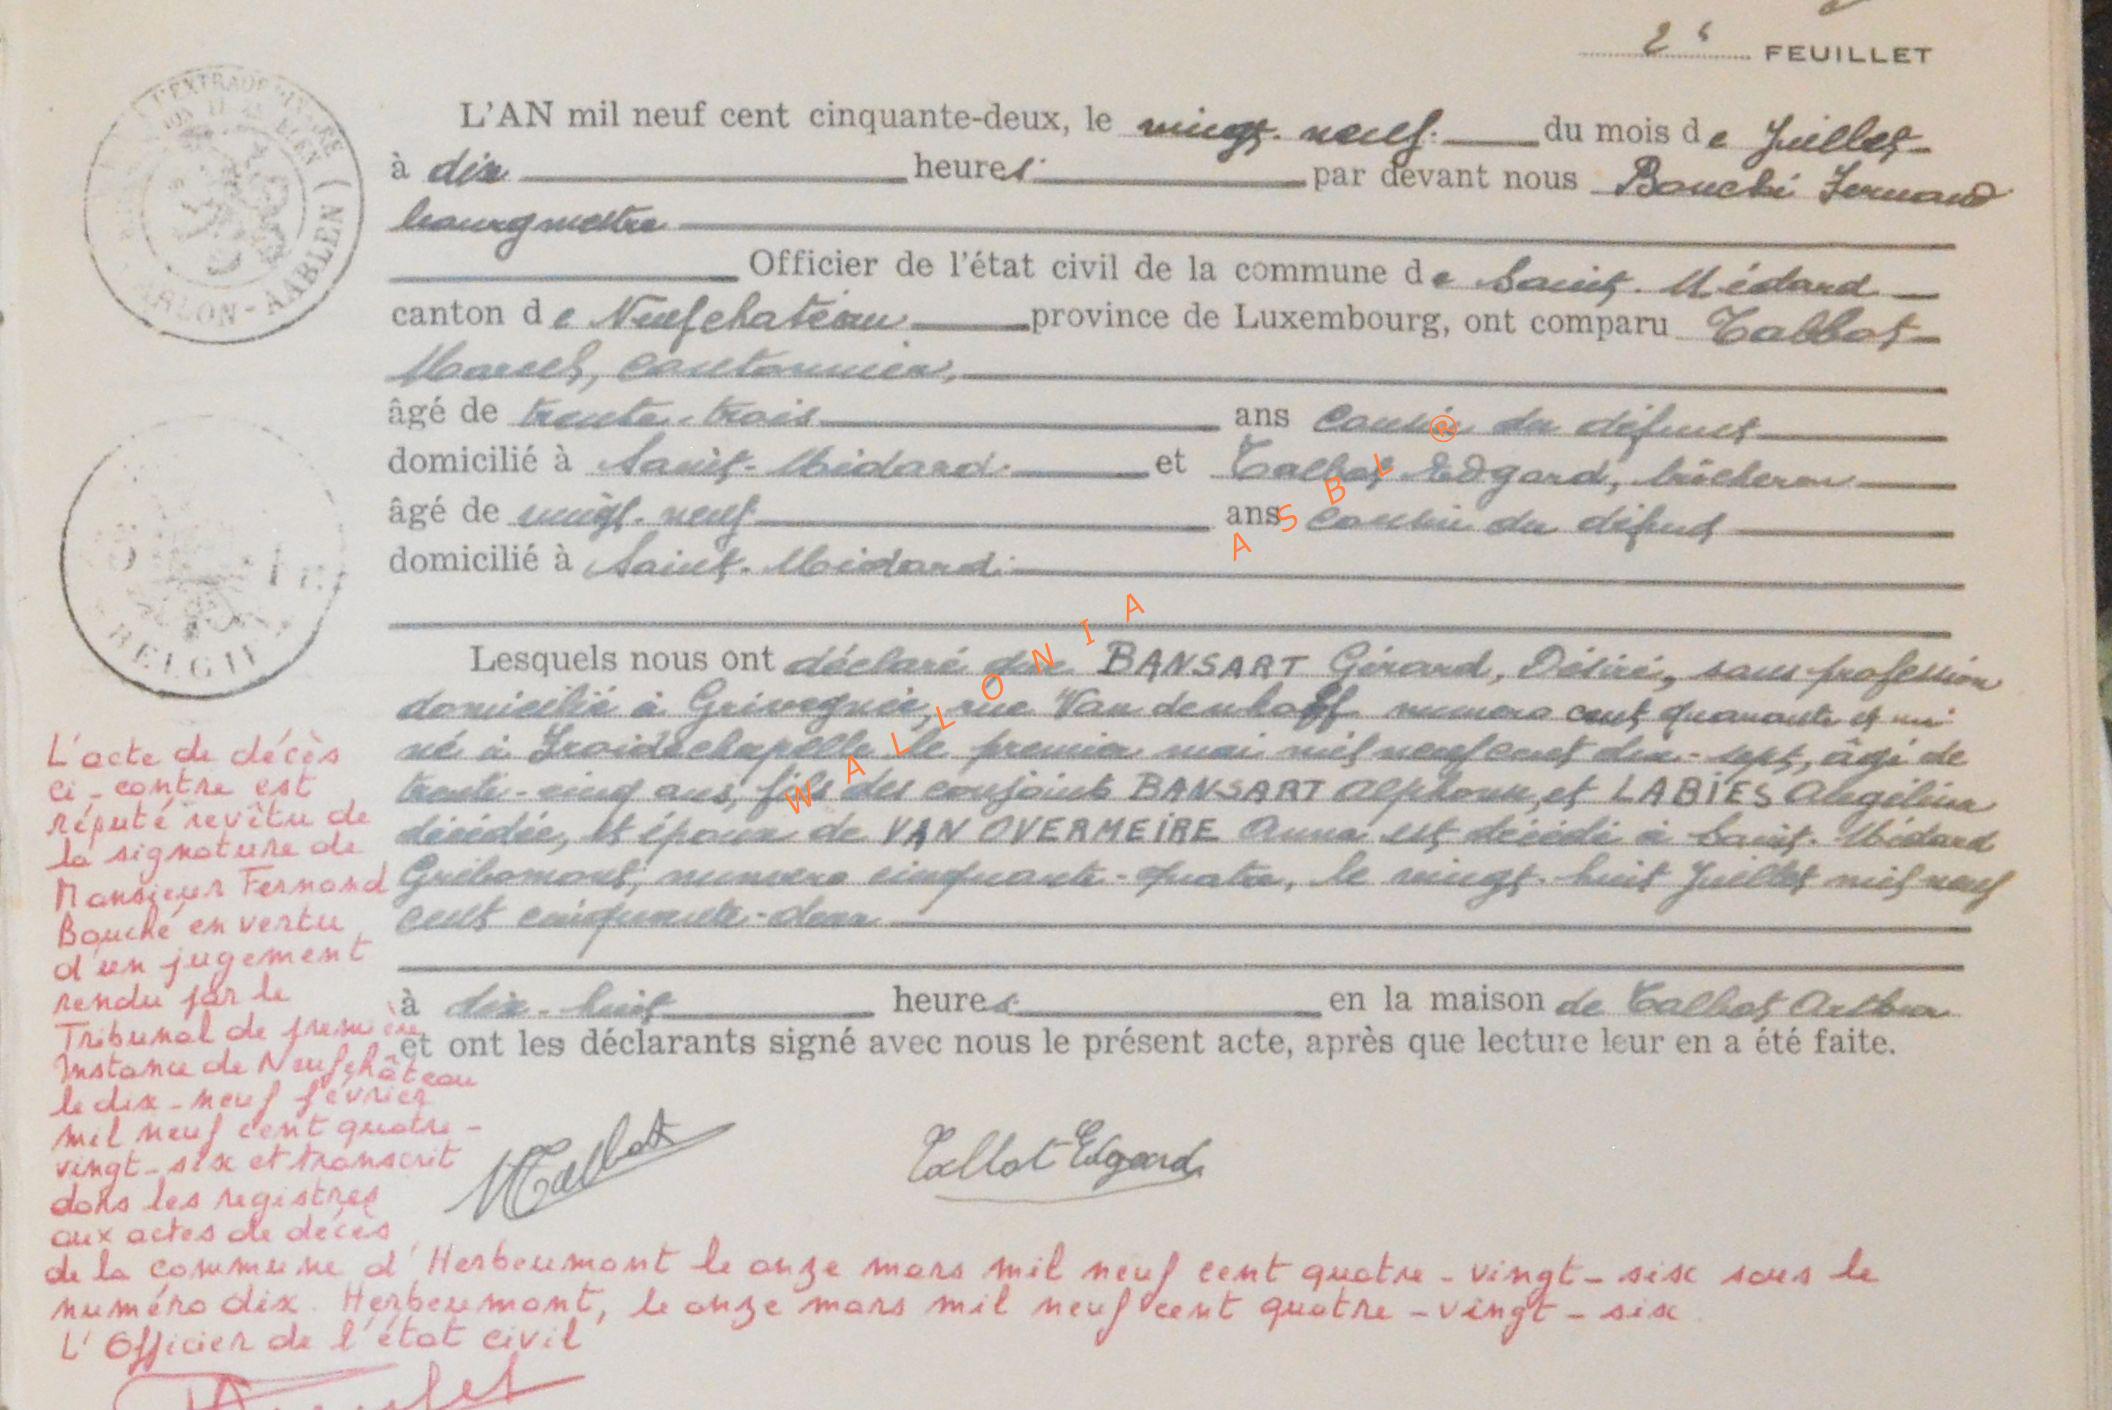 2e FEUILLET
L'AN mil neuf cent cinquante-deux, le vingt-neuf du mois de Juillet
à dix heures par devant nous Bouché Fernand
bourgmestre
Officier de l'état civil de la commune de Saint-Médard
canton de Neufchateau province de Luxembourg, ont comparu Talbot
Marcel, cantonnier,
âgé de trente-trois ans cousin du défunt
domicilié à Saint-Médard et Talbot Edgard, bûcheron
âgé de vingt-neuf ans cousin du défunt
domicilié à Saint-Médard
Lesquels nous ont déclaré que BANSART Gérard, Désiré, sans profession
domicilié à Grivegnée, rue Vandenhoff numero cent quarante et un
né à Froidchapelle le premier mai mil neuf cent dix-sept, âgé de
trente-cinq ans, fils des conjoints BANSART Alphonse, et LABIES Angélina
décédée, et époux de VAN OVERMEIRE Anna est décédé à Saint-Médard
Gribomont, numero cinquante-quatre, le vingt-huit Juillet mil neuf
cent cinquante-deux
à dix-huit heures en la maison de Talbot Arthur
et ont les déclarants signé avec nous le présent acte, après que lecture leur en a été faite.
MTalbot
Talbot Edgard
L'acte de décès
ci-contre est
réputé revêtu de
la signature de
Monsieur Fernand
Bouché en vertu
d'un jugement
rendu par le
Tribunal de première
Instance de Neufchâteau
le dix-neuf février
mil neuf cent quatre-
vingt-six et transcrit
dans les registres
aux actes de décès
de la commune d'Herbeumont le onze mars mil neuf cent quatre-vingt-six sous le
numéro dix. Herbeumont, le onze mars mil neuf cent quatre-vingt-six
L'Officier de l'état civil
ARLON-AARLEN
BELGIE
WALLONIA ASBL ®